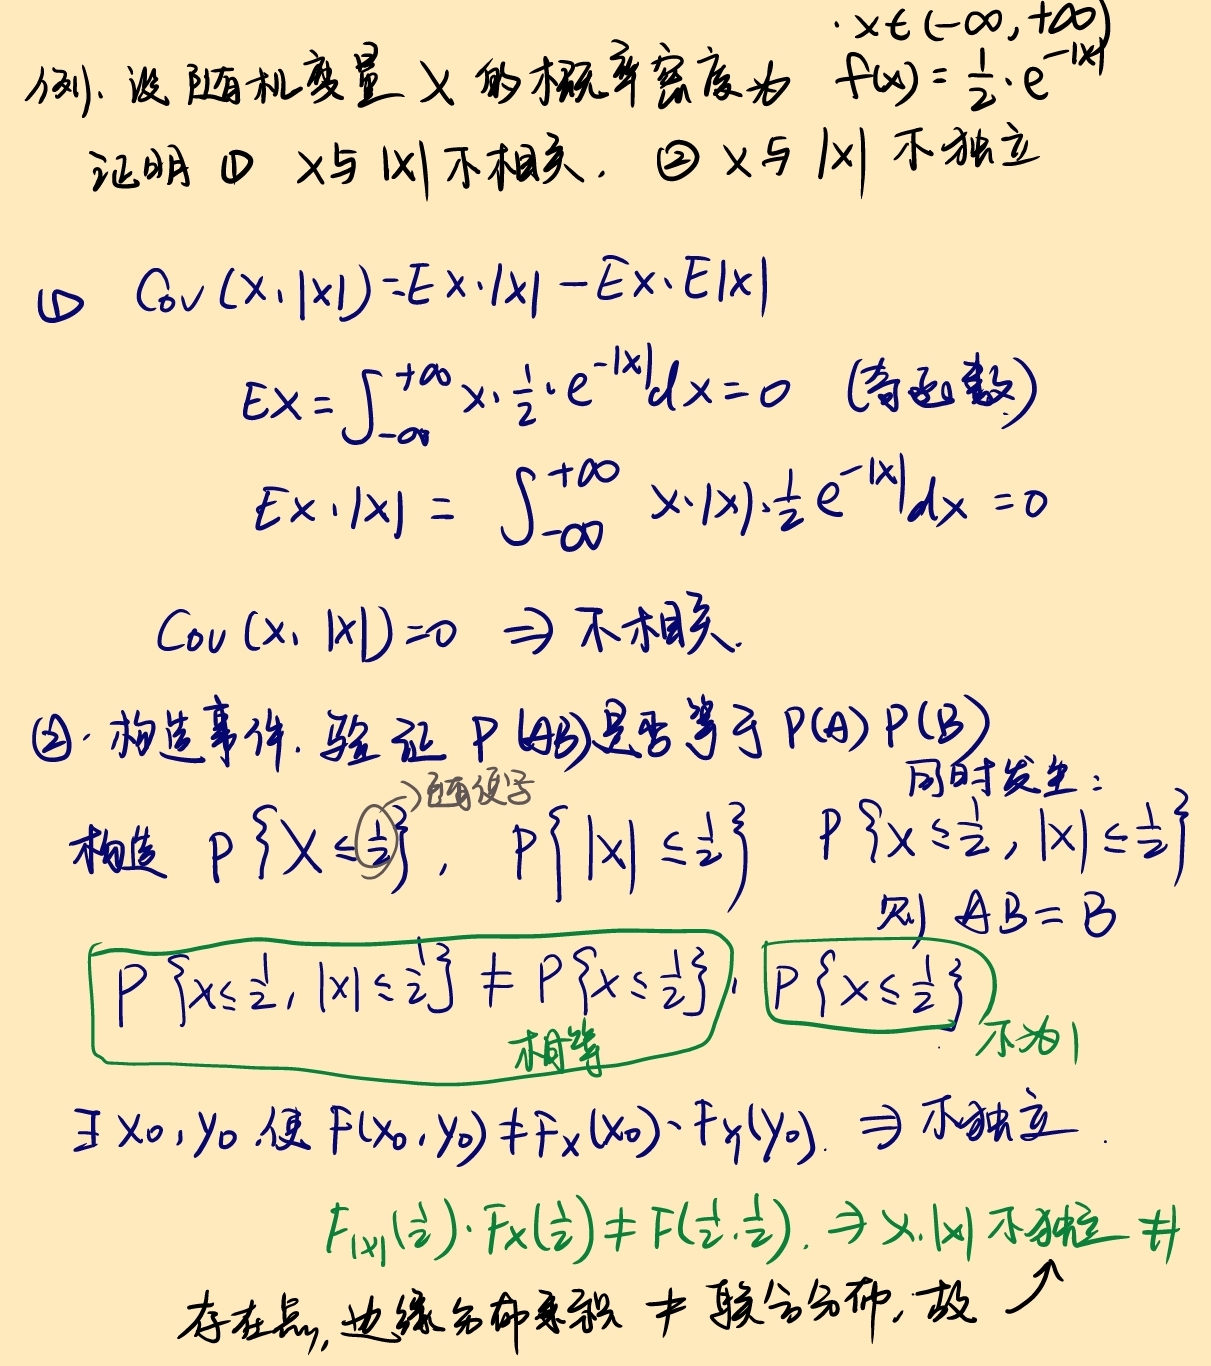 · x∈(-∞,+∞)
例. 设随机变量 X 的概率密度为 f(x) = 1/2 · e^{-|x|}
证明 ① X与|X|不相关. ② X与|X|不独立
① Cov(X,|X|)=EX·|X|-EX·E|X|
EX=∫_{-∞}^{+∞} x·1/2·e^{-|x|}dx=0 (奇函数)
EX·|X| = ∫_{-∞}^{+∞} x·|x|·1/2 e^{-|x|}dx =0
Cov(X,|X|)=0 ⇒ 不相关.
②. 构造事件. 验证 P(AB)是否等于P(A)P(B)
→随便写
同时发生:
构造 P{X≤1/2}, P{|X|≤1/2} P{X≤1/2,|X|≤1/2}
则 AB=B
P{X≤1/2,|X|≤1/2}≠P{X≤1/2}, P{X≤1/2}
相等 不为1
∃ x₀,y₀.使 F(x₀,y₀)≠F_X(x₀)·F_Y(y₀). ⇒ 不独立.
F_{|X|}(1/2)·F_X(1/2)≠F(1/2,1/2). ⇒ X,|X| 不独立 #
存在点, 边缘分布乘积 ≠ 联合分布, 故